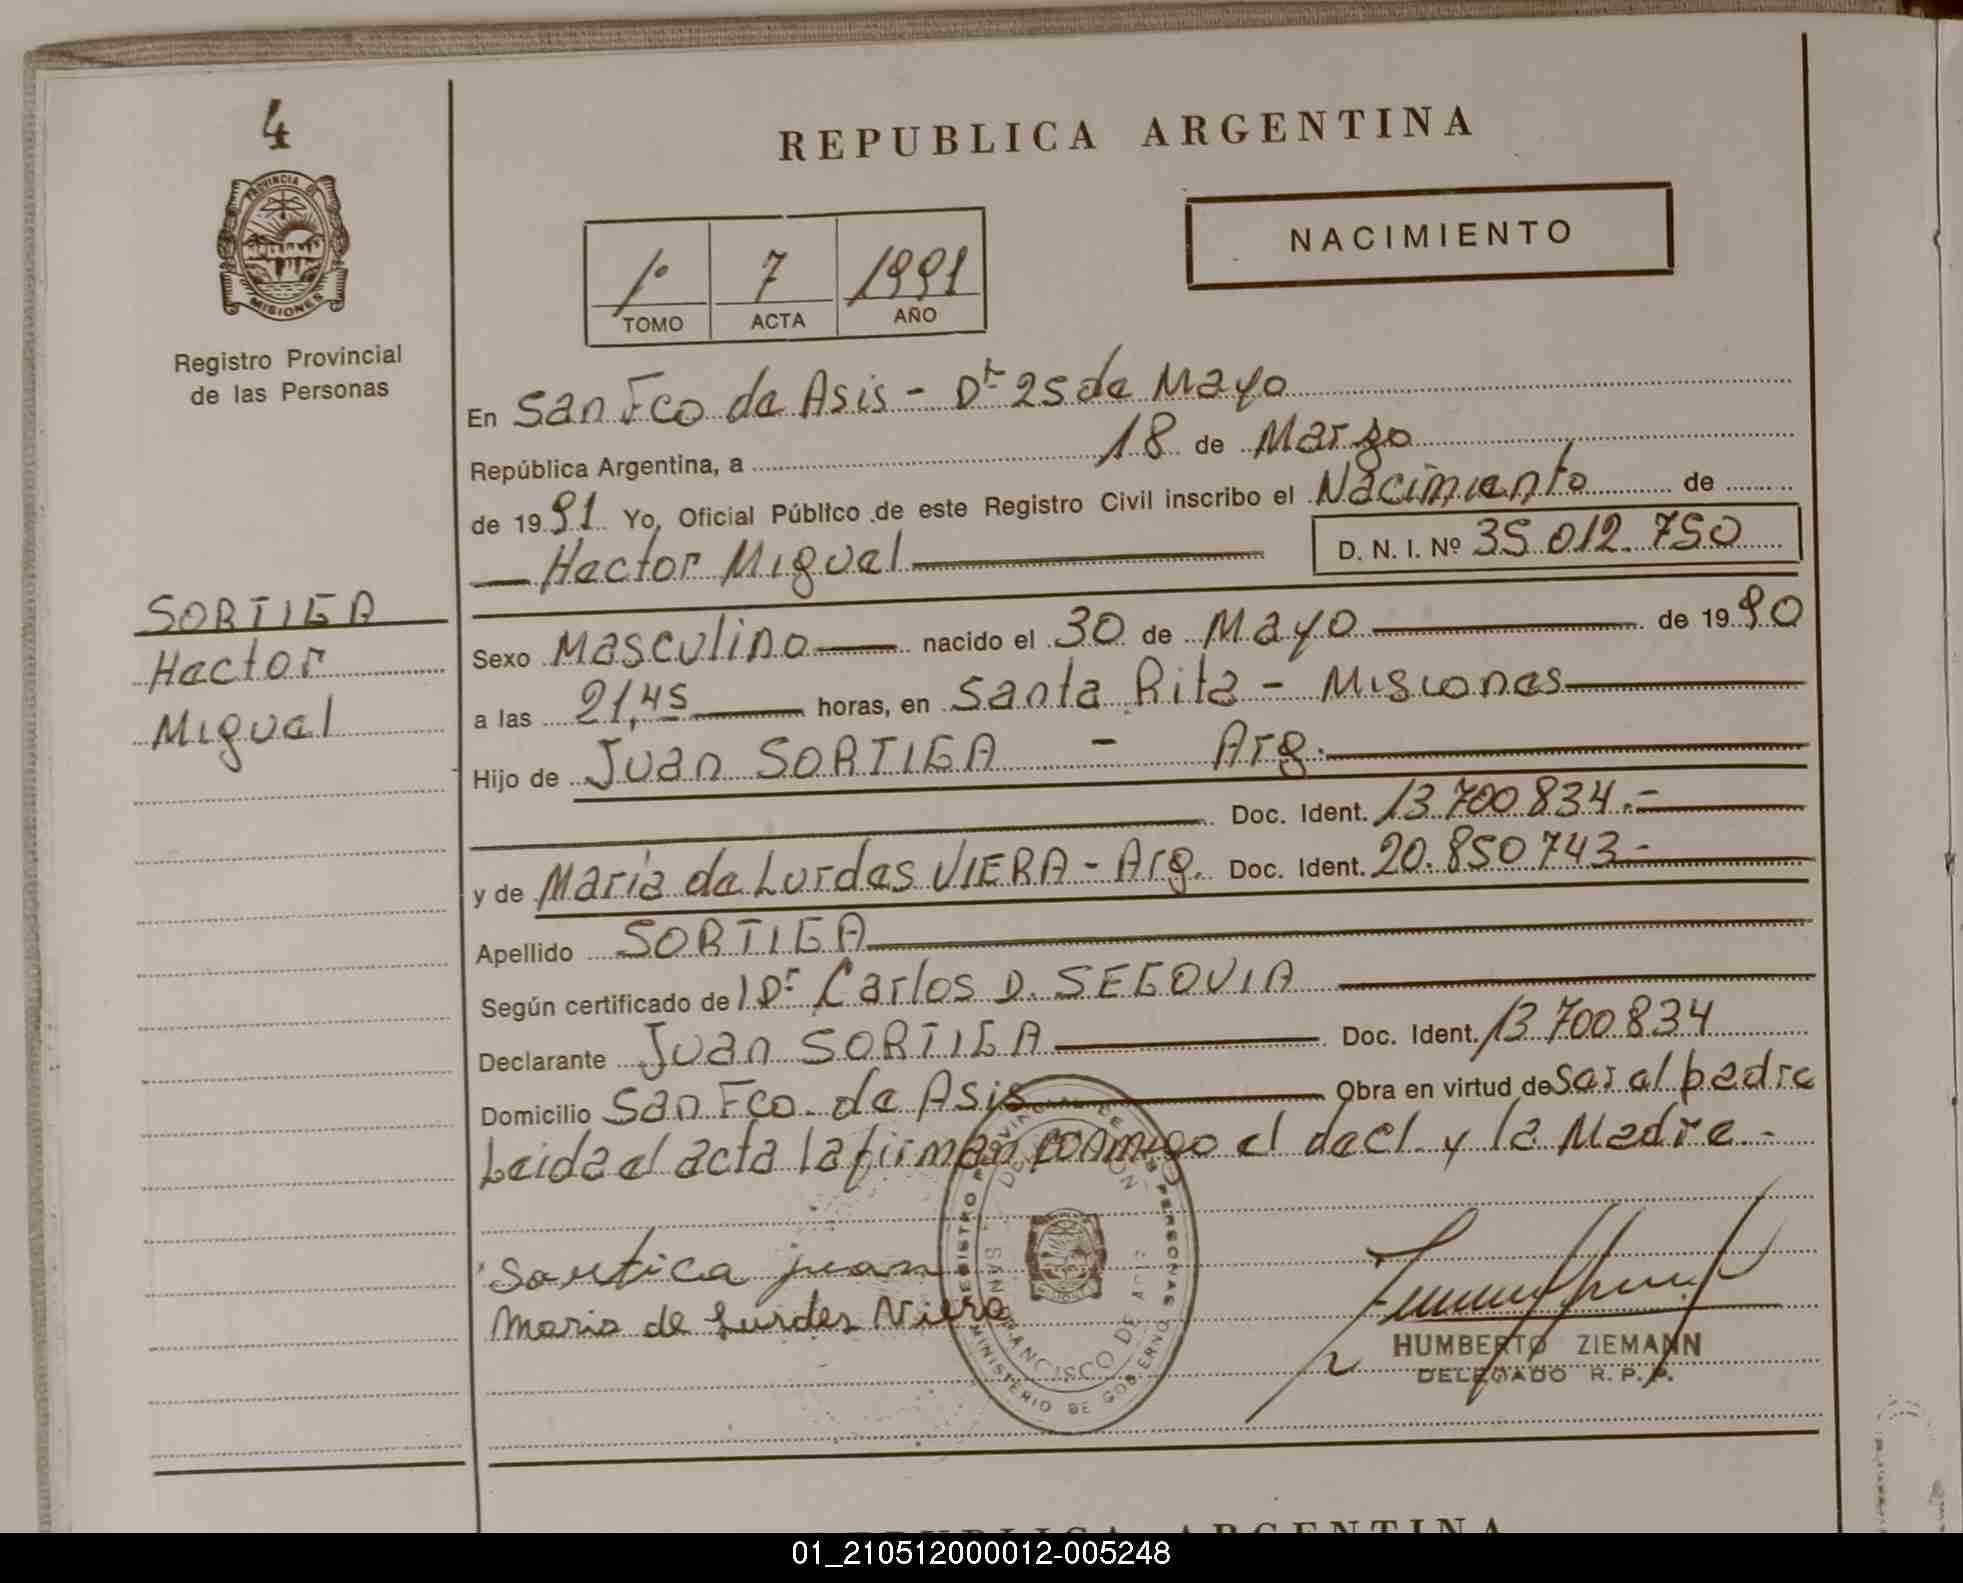 4
PROVINCIA DE
MISIONES
Registro Provincial
de las Personas
REPUBLICA ARGENTINA
NACIMIENTO
1º 7 1991
TOMO ACTA AÑO
En San Fco de Asis - Dt 25 de Mayo
República Argentina, a 18 de Marzo
de 1991 Yo, Oficial Público de este Registro Civil inscribo el Nacimiento de
Hector Miguel D. N. I. Nº 35.012.750
SORTIGA
Hector
Miguel
Sexo Masculino nacido el 30 de Mayo de 1990
a las 21,45 horas, en Santa Rita - Misiones
Hijo de Juan SORTIGA - Arg.
Doc. Ident. 13.700.834.-
y de Maria de Lurdes VIERA - Arg. Doc. Ident. 20.850.743-
Apellido SORTIGA
Según certificado de l Dr Carlos D. SEGOVIA
Declarante Juan SORTIGA Doc. Ident. 13.700.834
Domicilio San Fco. de Asis Obra en virtud de Ser el padre
Leida el acta la firman conmigo el decl. y la Madre.-
Sortica juan
Maria de Lurdes Viera
SAN FRANCISCO DE ASIS
MINISTERIO DE GOBIERNO
HUMBERTO ZIEMANN
DELEGADO R. P. P.
REPUBLICA ARGENTINA
01_210512000012-005248